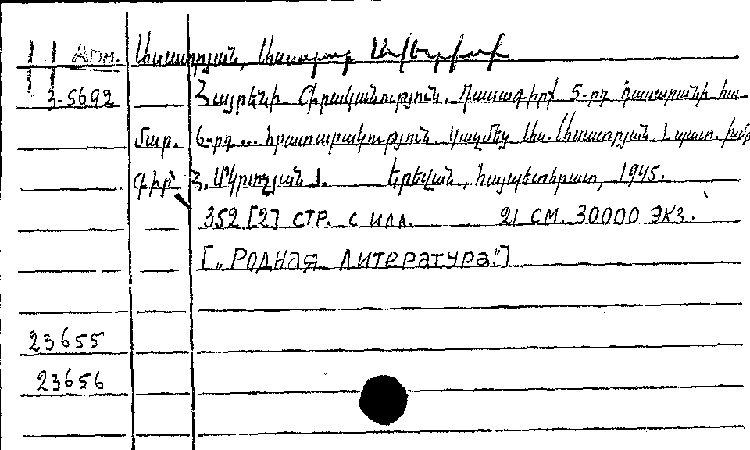 Арм. Ասատրյան, Ասատուր Ավետիսի
3-5692 Հայրենի Գրականություն. Դասագիրք 5-րդ դասարանի հա-
մար. 6-րդ ... հրատարակություն Կազմեց Աս. Ասատրյան Նպատ. խմբ
գիրք Հ. Մկրտչյան 1. Երեվան, Հայպետհրատ, 1945.
352 [2] стр. с илл. 21 см. 30000 экз.
["Родная литература"]
23655
23656